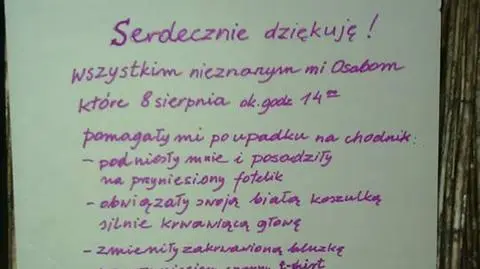 Serdecznie dziękuję!
wszystkim nieznanym mi Osobom
które 8 sierpnia ok. godz 14⁰⁰
pomagały mi po upadku na chodnik:
- podniosły mnie i posadziły
na przyniesiony fotelik
- obwiązały swoją białą koszulką
silnie krwawiącą głowę
- zmieniły zakrwawioną bluzkę
t-shirt